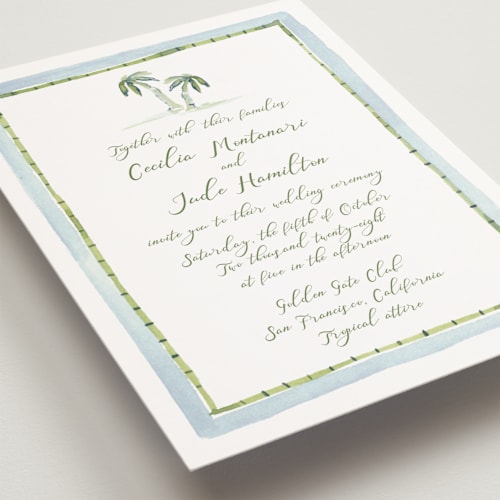 Together with their families
Cecilia Montanari
and
Jude Hamilton
invite you to their wedding ceremony
Saturday, the fifth of October
Two thousand twenty-eight
at five in the afternoon
Golden Gate Club
San Francisco, California
Trypical attire